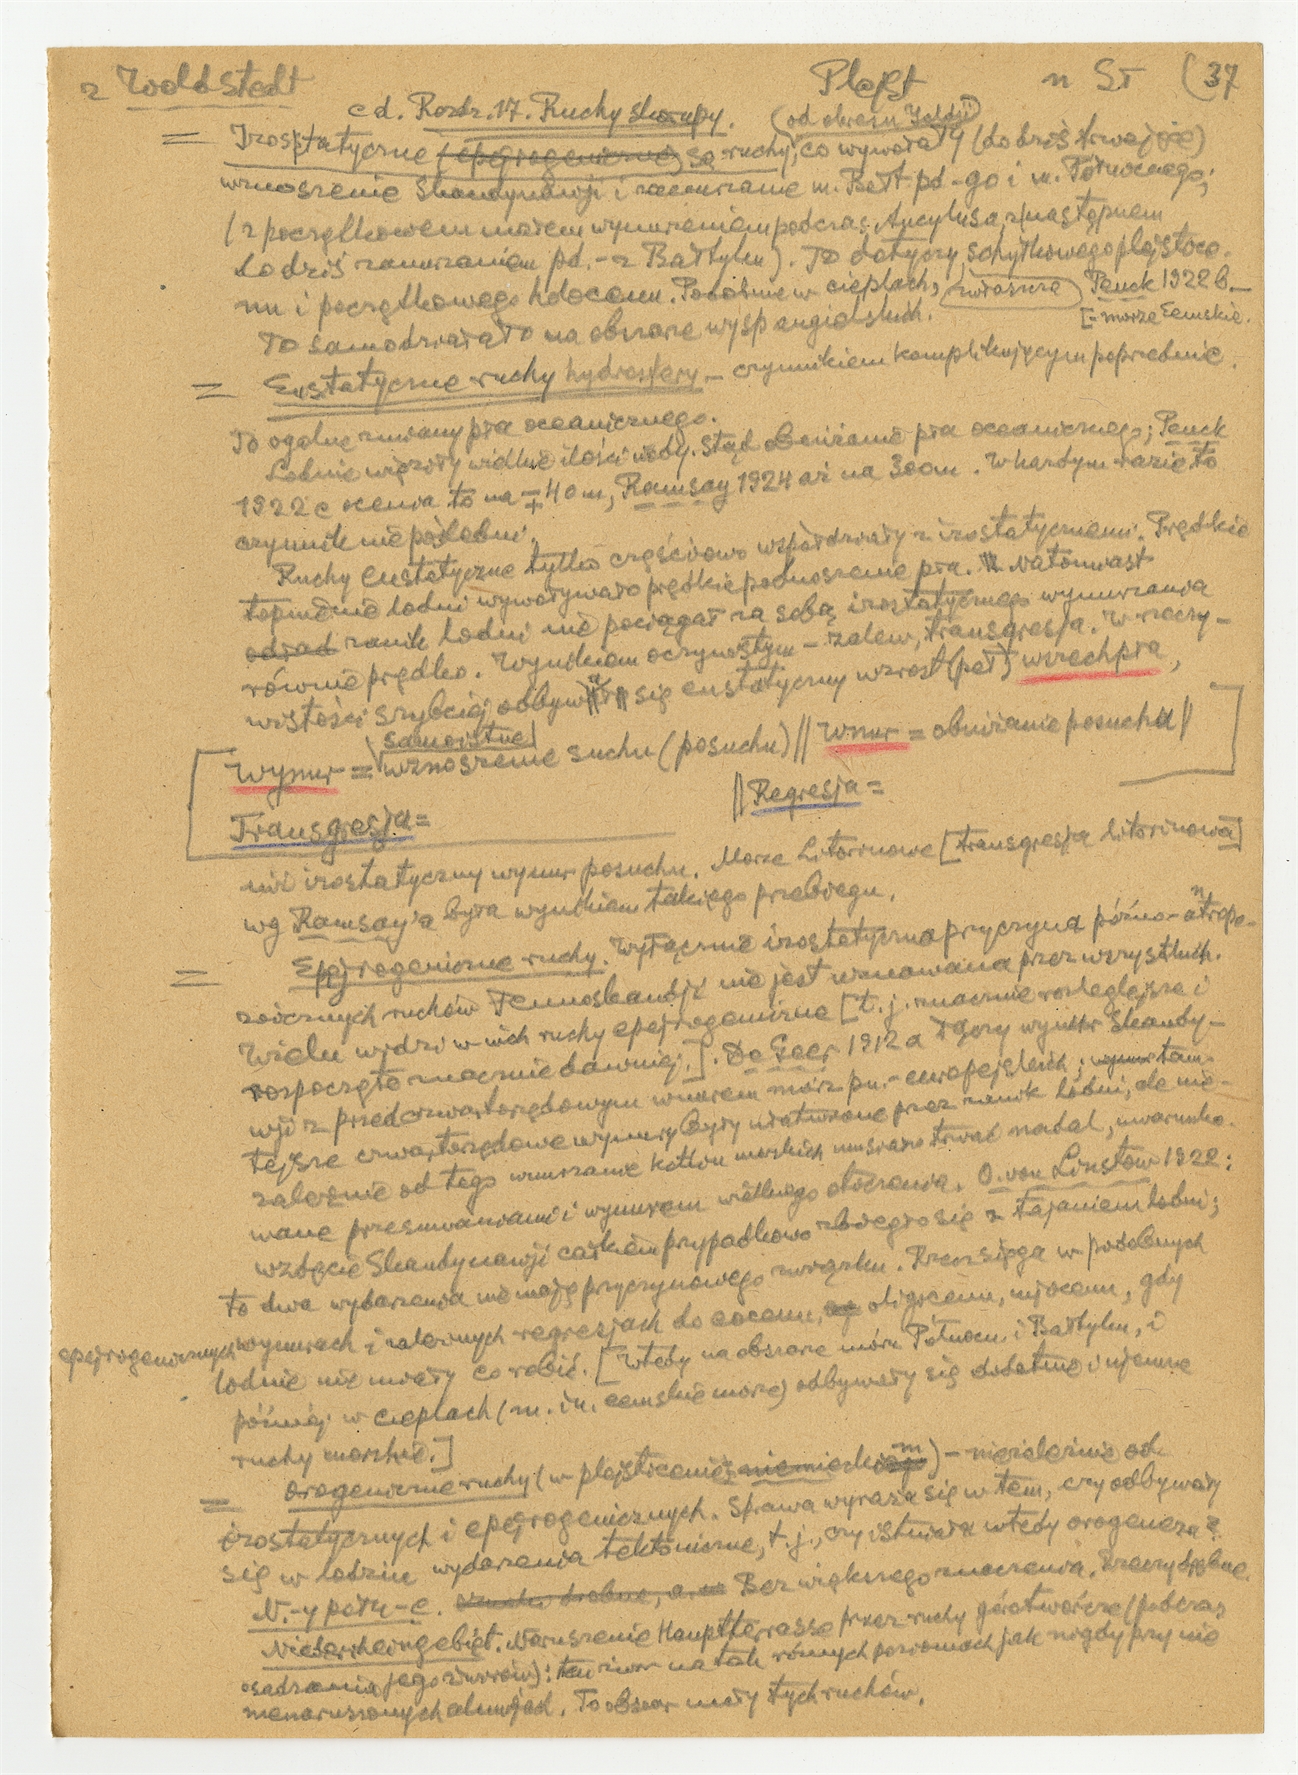 z Woldstedt Plejst n St (37
cd. Rozdz. 17. Ruchy skorupy. (od okresu Yoldii)
= Izostatyczne (epejrogeniczne) są ruchy, co wywołały (do dziś trwające)
wznoszenie Skandynawji i zanurzanie m. Bałt. pd-go i m. Północnego;
(z początkowem małem wynurzeniem podczas Ancylusa, z następnem
do dziś zanurzaniem pd.- z Bałtyku). To dotyczy schyłkowego plejstoce-
nu i początkowego holocenu. Podobnie w ciepłach, zwłaszcza Penck 1922 b_
[= morze Eemskie.
To samo działało na obszarze wysp angielskich.
= Eustatyczne ruchy hydrosfery - czynnikiem komplikującym poprzednie.
To ogólne zmiany pła oceanicznego.
Lodnie więziły wielkie ilości wody. Stąd obniżanie pła oceanicznego; Penck
1922 c ocenia to na ∓ 40 m, Ramsay 1924 aż na 300m. W każdym razie to
czynnik niepośledni.
Ruchy eustatyczne tylko częściowo współdziały z izostatycznemi. Prędkie
topnienie lodni wywoływało prędkie podnoszenie pła. Natomiast
odład zanik lodni nie pociągał za sobą izostatycznego wynurzania
równie prędko. Wynikiem oczywistym - zalew, transgresja. W rzeczy-
wistości szybciej odbywał się eustatyczny wzrost (peł) wszechpła,
samoistne
[Wynur = wznoszenie suchu (posuchu) || Wnur = obniżanie posuchu || ]
|| Regresja =
Transgresja =
niż izostatyczny wynur posuchu. Morze Litorinowe [transgresja litorinowa]
wg Ramsay'a była wynikiem takiego przebiegu.
= Epejrogeniczne ruchy. Wyłącznie izostatyczna przyczyna późno-antropo-
zoicznych ruchów Fennoskandji nie jest uznawana przez wszystkich.
Wielu widzi w nich ruchy epejrogeniczne [t.j. znacznie rozleglejsze i
rozpoczęte znacznie dawniej.]. De Geer 1912 a łączy wynur Skandy-
wji z przedczwartorzędowym wnurem mórz pn.-europejskich; tam-
tejsze czwartorzędowe wynury były ułatwione przez zanik lodni, ale nie-
zależnie od tego wnurzanie kotlin morskich musiało trwać nadal, uwarunko-
wane przesuwaniami i wynurem wielkiego otoczenia. O. von Linstow 1922:
wzdęcie Skandynawji całkiem przypadkowo zbiegło się z tajaniem lodni;
to dwa wydarzenia nie mają przyczynowego związku. Rzecz sięga w podobnych
epejrogenicznych wynurach i zalewnych regresjach do eocenu, oligocenu, mjocenu, gdy
lodnie nie miały co robić. [Wtedy na obszarze mórz Północn. i Bałtyku, i
później w ciepłach (m. in. eemskie morze) odbywały się dodatnie i ujemne
ruchy morskie.]
= Orogeniczne ruchy (w plejstocenie niemieckim) - niezależnie od
izostatycznych i epejrogenicznych. Sprawa wyraża się w tem, czy odbywały
się w lodziu wydarzenia tektoniczne, t.j., czy istniała wtedy orogeneza?
N.-y poty-c. Bez większego znaczenia. Rzeczy drobne.
Niederrheingebiet. Naruszenie Hauptterrasse przez ruchy górotwórcze (podczas
osadzania jego żwirów): ten żwir na tak różnych poziomach jak nigdy przy nie
nienaruszonych aluwjach. To obszar mały tych ruchów.